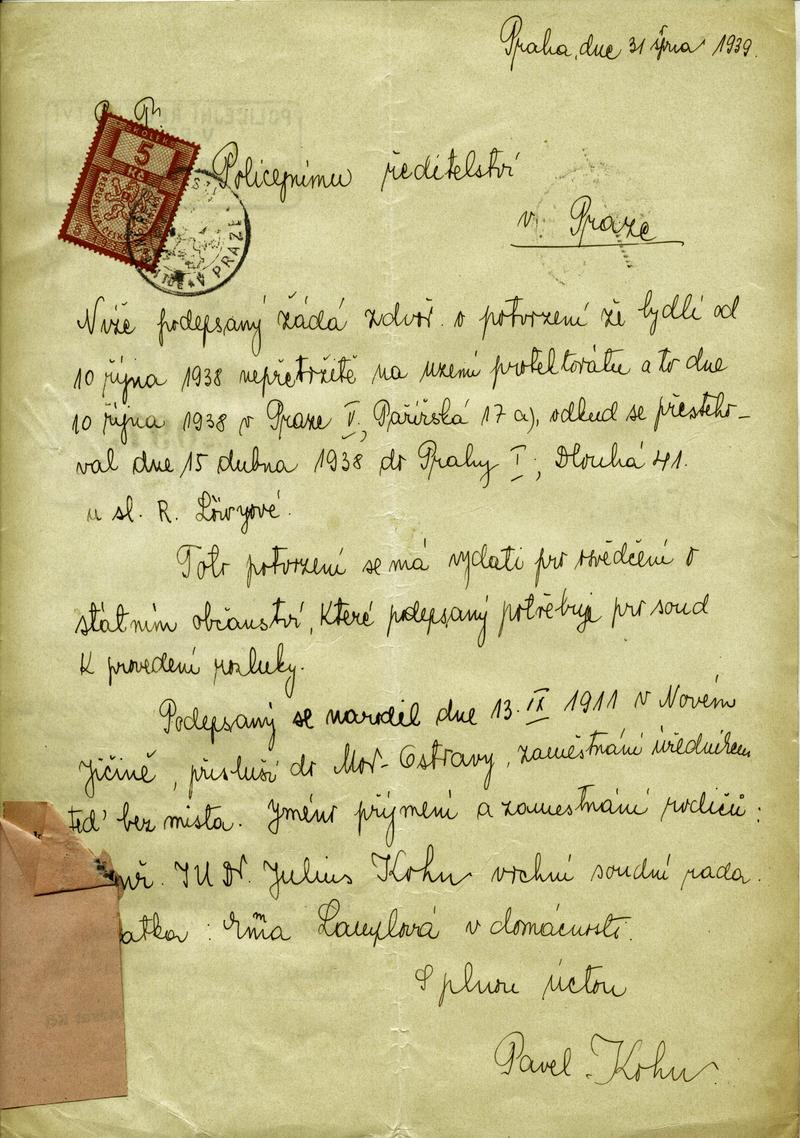 Praha, dne 31 října 1939.
P. T.
KOLEK
5
Kč
V PRAZE
Policejnímu ředitelství
v Praze
Níže podepsaný žádá zdvoř. o potvrzení že bydlí od
10 října 1938 nepřetržitě na uzemí protektorátu a to dne
10 října 1938 v Praze V, Pařížská 17 a), odkud se přestěho-
val dne 15 dubna 1938 do Prahy I, Dlouhá 41.
u sl. R. Löwyové.
Toto potvrzení se má vydati pro osvědčení o
státním občanství, které podepsaný potřebuje pro soud
k provedení rozluky.
Podepsaný se narodil dne 13. IX 1911 v Novém
Jičíně, přísluší do Mor. Ostravy, zaměstnání úředníkem
teď bez místa. Jméno příjmení a zaměstnání rodičů:
JUDr. Julius Kohn vrchní soudní rada.
atka: Lamplová v domácnosti.
S plnou úctou
Pavel Kohn